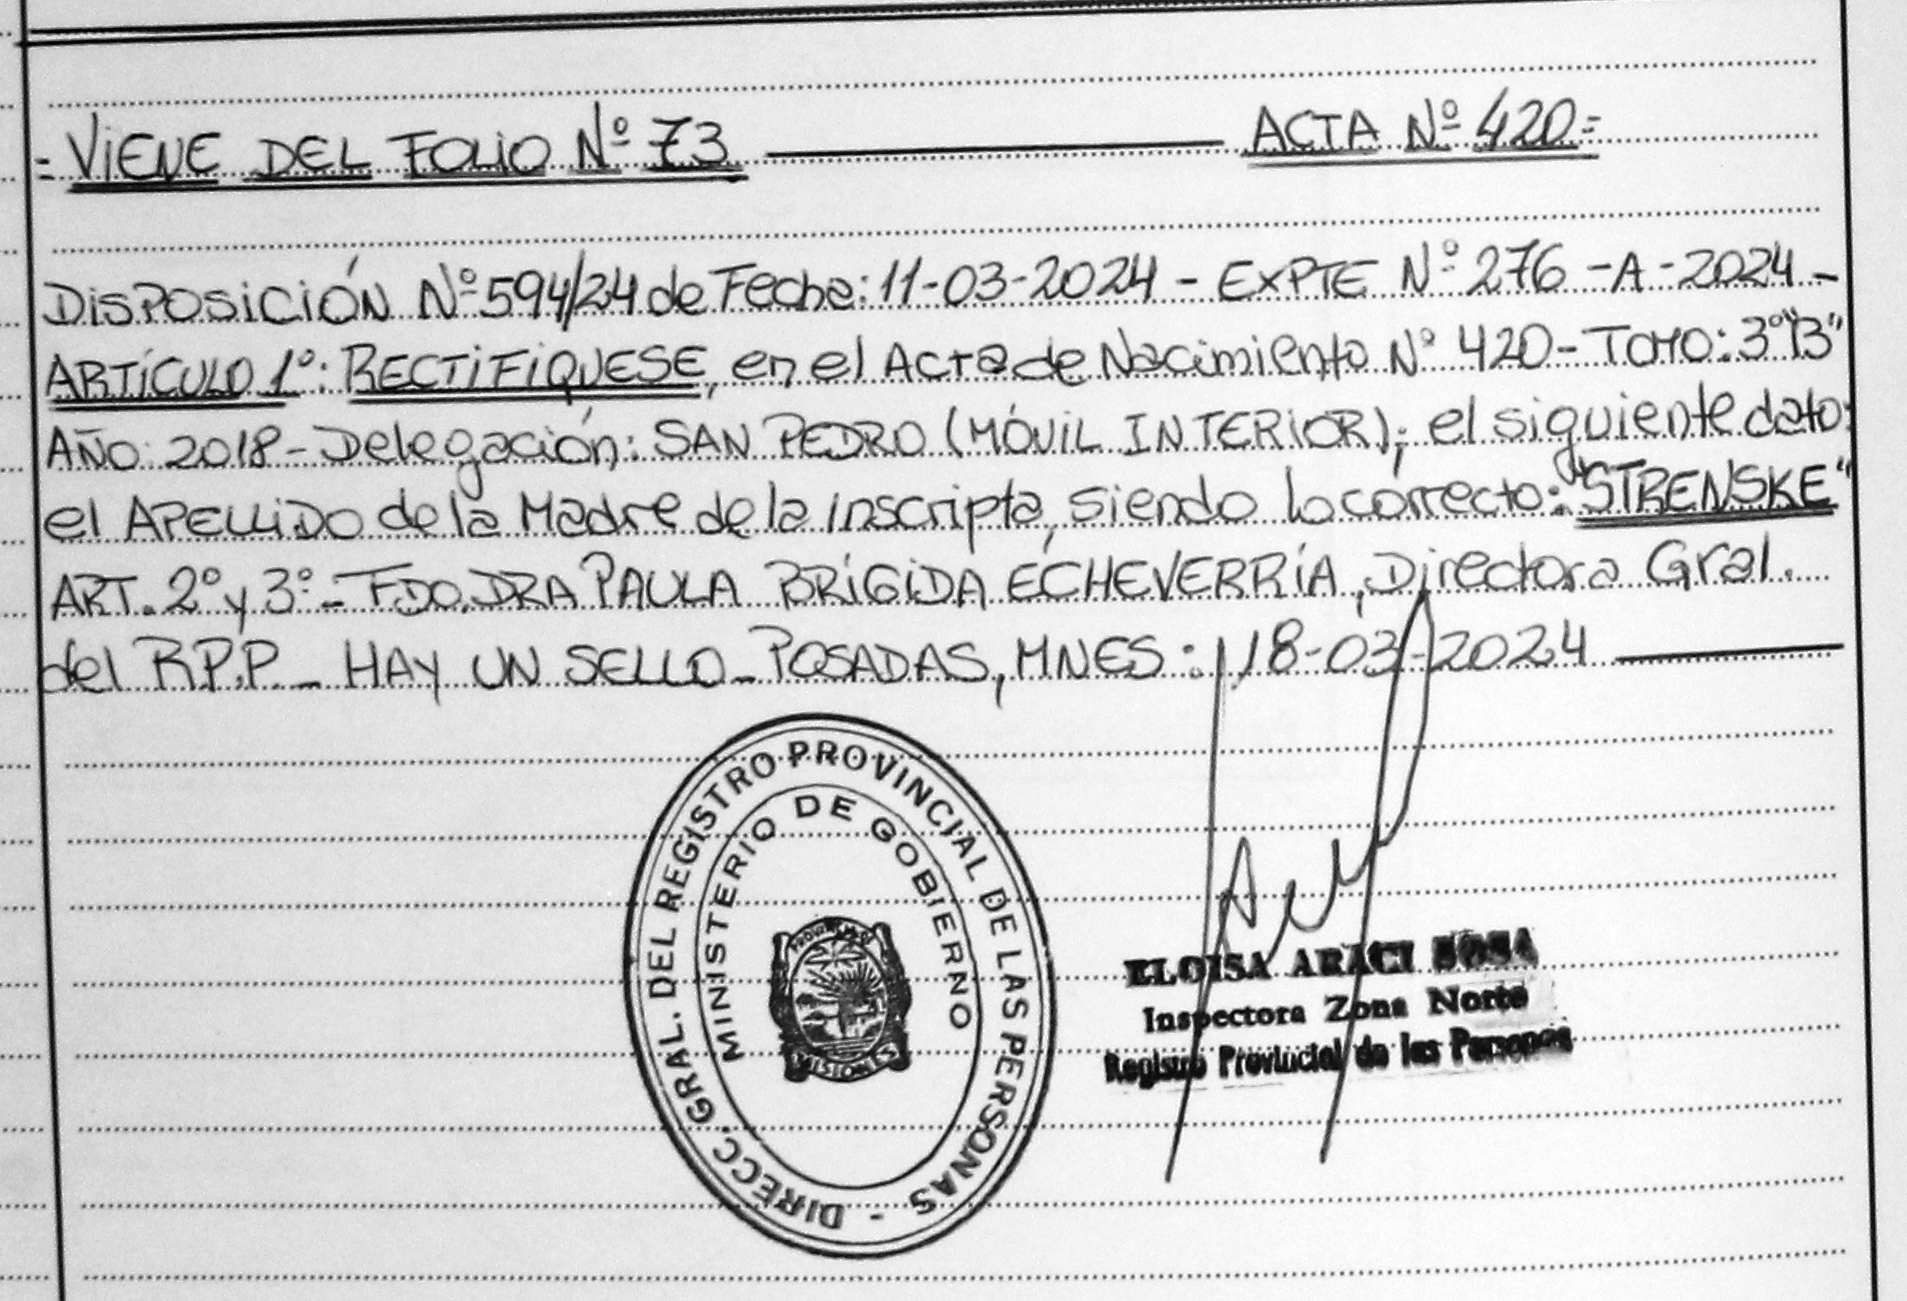 = VIENE DEL FOLIO Nº 73 ACTA Nº 420=
DISPOSICIÓN Nº 594/24 de Fecha: 11-03-2024 - EXPTE Nº 276 -A-2024-
ARTÍCULO 1º: RECTIFIQUESE, en el Acta de Nacimiento Nº 420- TOMO: 3º"B"
AÑO: 2018- Delegación: SAN PEDRO (MÓVIL INTERIOR); el siguiente dato:
el APELLIDO de la Madre de la inscripta, siendo lo correcto: "STRENSKE"
ART. 2º y 3º- FDO. DRA PAULA BRÍGIDA ECHEVERRÍA, Directora Gral.
del R.P.P_ HAY UN SELLO_ POSADAS, MNES: 18-03-2024
DIRECC. GRAL. DEL REGISTRO PROVINCIAL DE LAS PERSONAS -
MINISTERIO DE GOBIERNO
MISIONES
ELOISA ARACI SOSA
Inspectora Zona Norte
Registro Provincial de las Personas